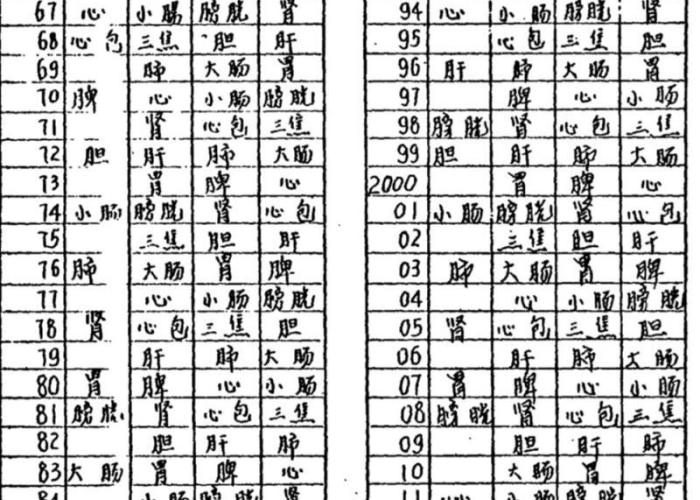 67 心 小肠 膀胱 肾
68 心包 三焦 胆 肝
69 肺 大肠 胃
70 脾 心 小肠 膀胱
71 肾 心包 三焦
72 胆 肝 肺 大肠
73 胃 脾 心
74 小肠 膀胱 肾 心包
75 三焦 胆 肝
76 肺 大肠 胃 脾
77 心 小肠 膀胱
78 肾 心包 三焦 胆
79 肝 肺 大肠
80 胃 脾 心 小肠
81 膀胱 肾 心包 三焦
82 胆 肝 肺
83 大肠 胃 脾 心
84 小肠 膀胱 肾
94 心 小肠 膀胱 肾
95 心包 三焦 胆
96 肝 肺 大肠 胃
97 脾 心 小肠
98 膀胱 肾 心包 三焦
99 胆 肝 肺 大肠
2000 胃 脾 心
01 小肠 膀胱 肾 心包
02 三焦 胆 肝
03 肺 大肠 胃 脾
04 心 小肠 膀胱
05 肾 心包 三焦 胆
06 肝 肺 大肠
07 胃 脾 心 小肠
08 膀胱 肾 心包 三焦
09 胆 肝 肺
10 大肠 胃 脾
11 心 小肠 膀胱 肾